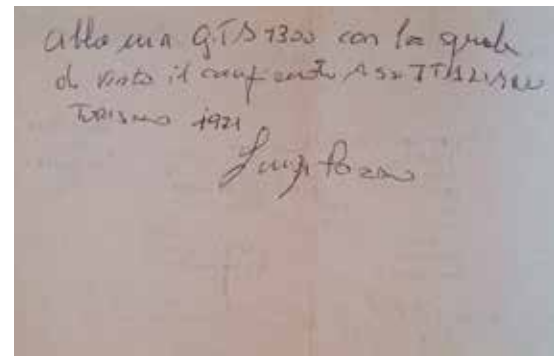 alla mia GTS 1300 con la quale
ho vinto il campionato
Turismo 1971
Luigi